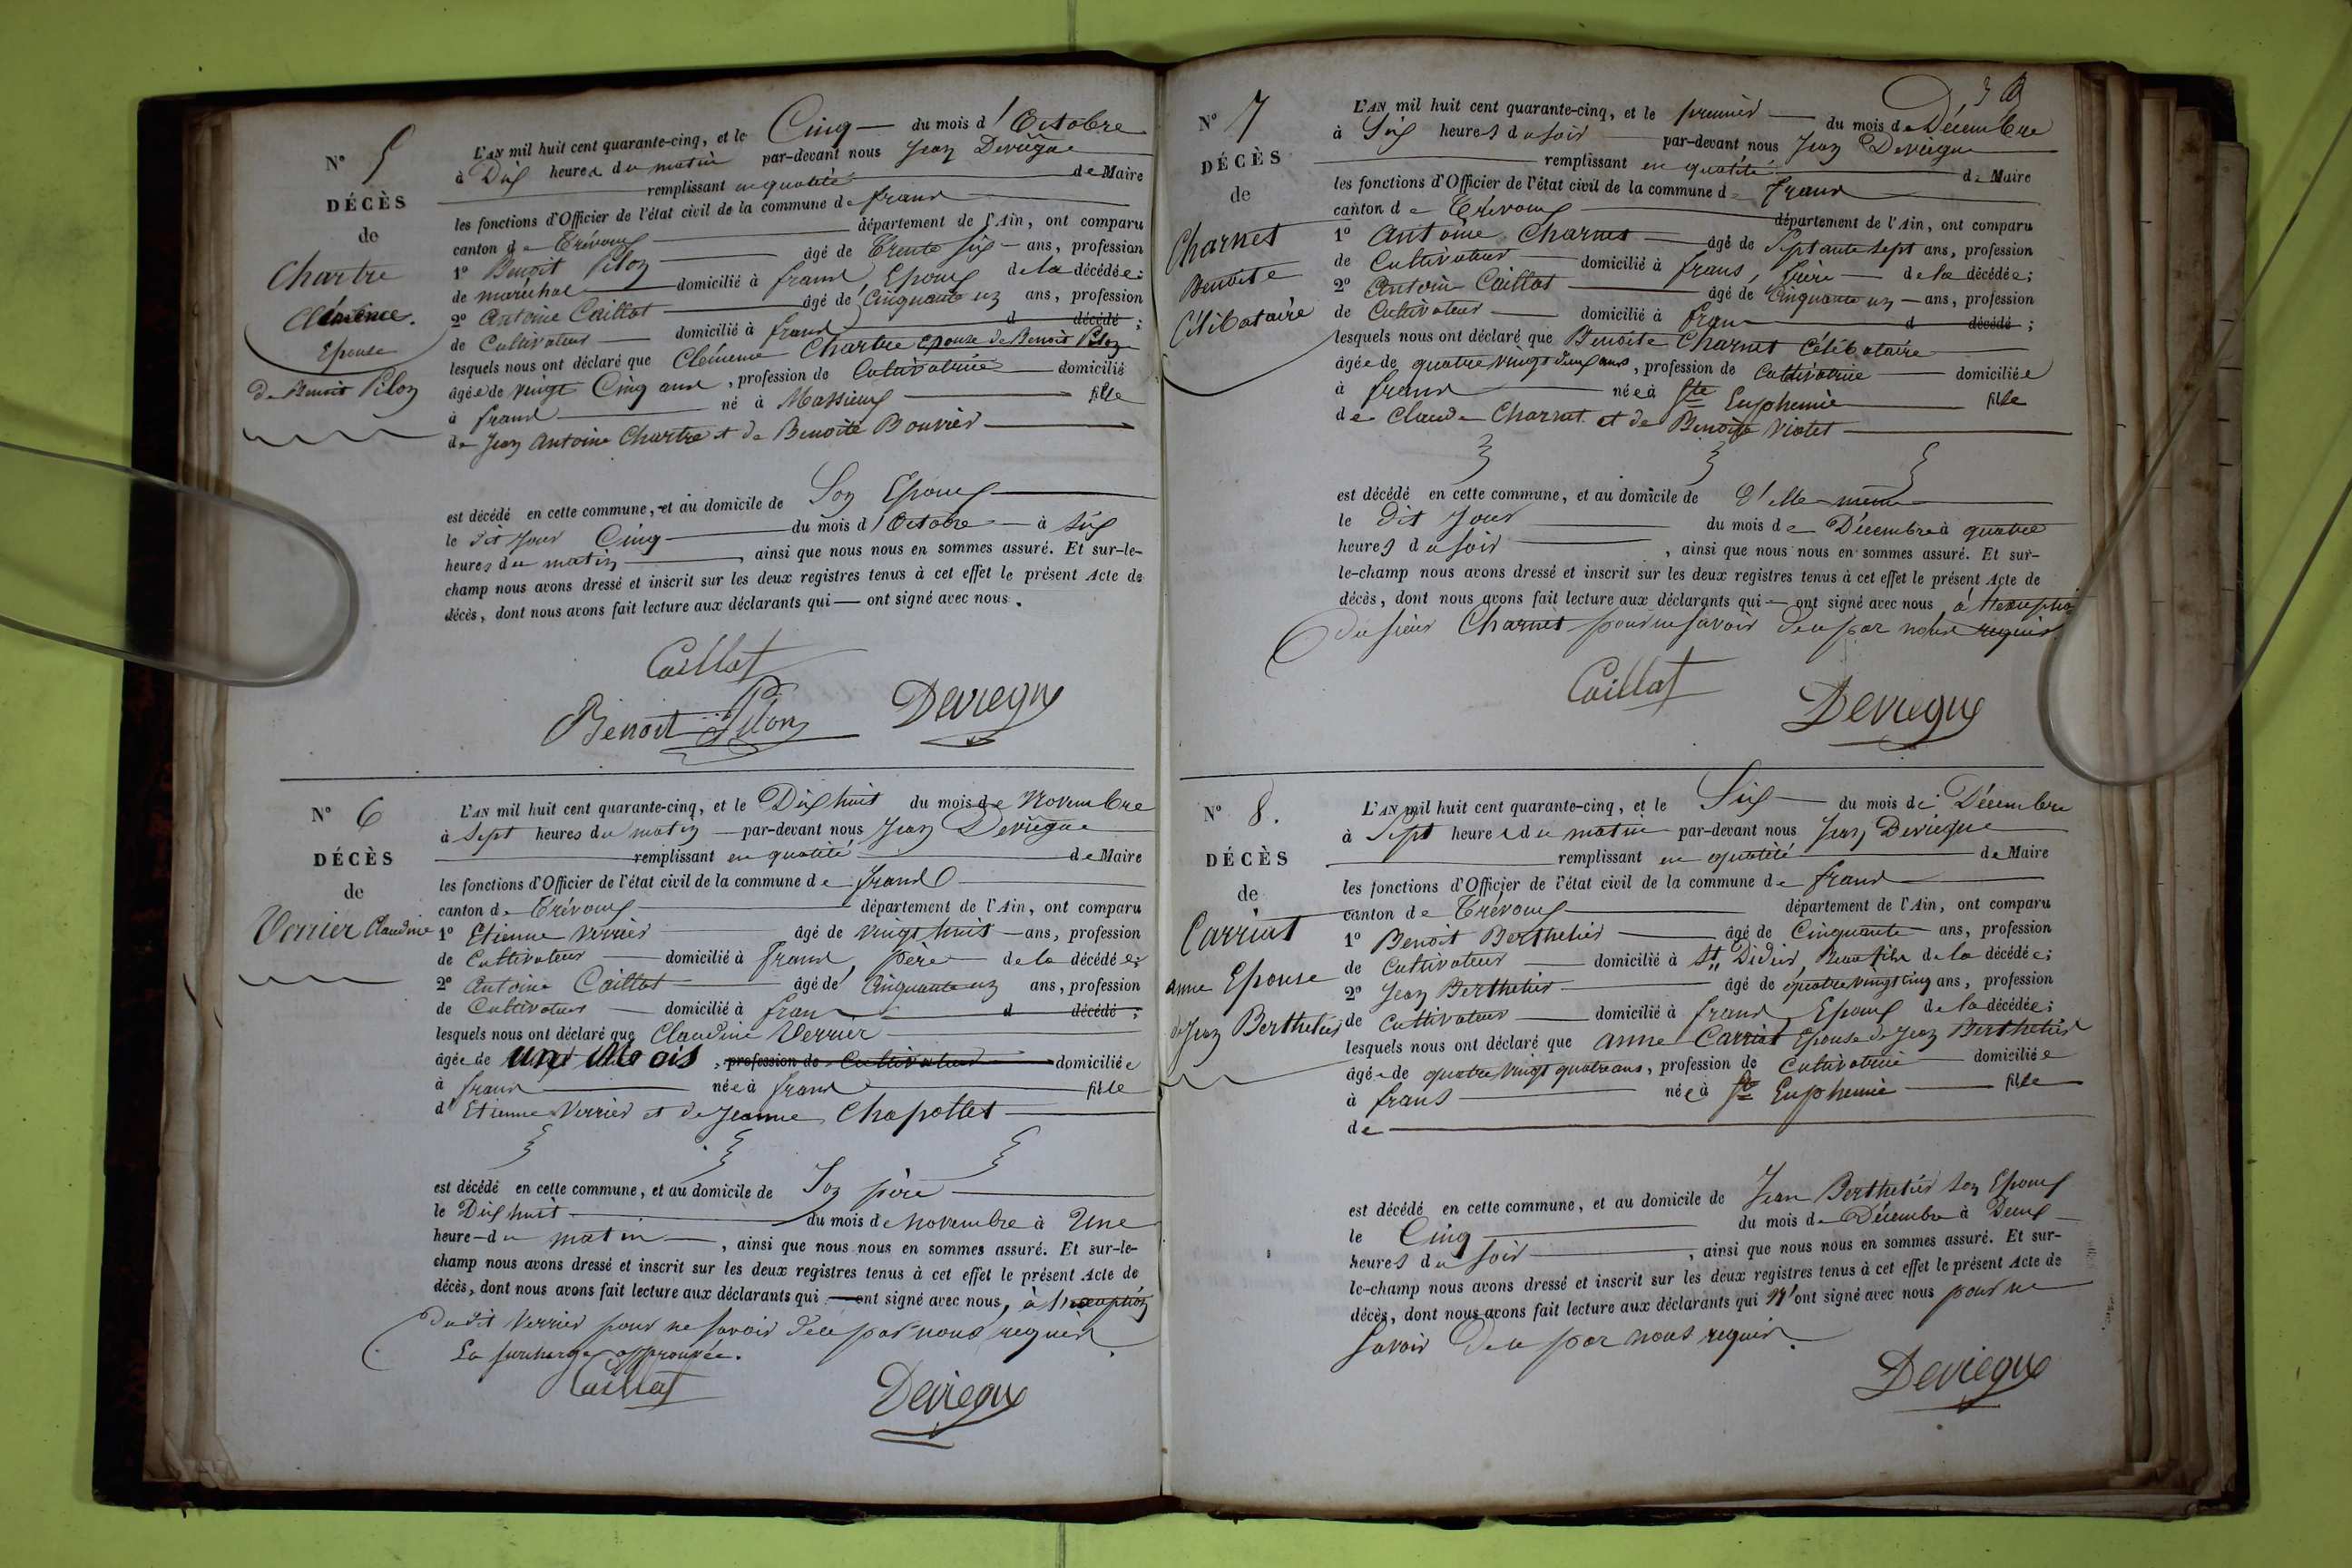 N° 5
DÉCÈS
de
Chartre
Clémence.
Epouse
de Benoit Pilon
L'AN mil huit cent quarante-cinq, et le Cinq du mois d'Octobre
à Dix heures du matin par-devant nous Jean Deviegue
remplissant en qualité de Maire
les fonctions d'Officier de l'état civil de la commune de frans
canton de Trévoux département de l'Ain, ont comparu
1° Benoit Pilon âgé de Trente six ans, profession
de maréchal domicilié à frans, Epoux de la décédée;
2° Antoine Caillat âgé de Cinquante un ans, profession
de Cultivateur domicilié à frans d décédé;
lesquels nous ont déclaré que Clémence Chartre Epouse de Benoit Pilon
âgée de vingt Cinq ans, profession de Cultivatrice domicilié
à frans né à Massieux fille
de Jean Antoine Chartre et de Benoite Bouvier
est décédé en cette commune, et au domicile de Son Epoux
le dit jour Cinq du mois d'Octobre à six
heures du matin, ainsi que nous nous en sommes assuré. Et sur-le-
champ nous avons dressé et inscrit sur les deux registres tenus à cet effet le présent Acte de
décès, dont nous avons fait lecture aux déclarants qui ont signé avec nous.
Caillat
Benoit Pilon Deviegue
N° 6
DÉCÈS
de
Verrier Claudine
L'AN mil huit cent quarante-cinq, et le Dix huit du mois de Novembre
à Sept heures du matin par-devant nous Jean Deviegue
remplissant en qualité de Maire
les fonctions d'Officier de l'état civil de la commune de frans
canton de Trévoux département de l'Ain, ont comparu
1° Etienne Verrier âgé de vingt huit ans, profession
de Cultivateur domicilié à frans, père de la décédée;
2° Antoine Caillat âgé de Cinquante un ans, profession
de Cultivateur domicilié à frans d décédé;
lesquels nous ont déclaré que Claudine Verrier
âgée de un Mois, profession de Cultivateur domiciliée
à frans née à frans fille
d'Etienne Verrier et de Jeanne Chapollet
est décédé en cette commune, et au domicile de Son père
le Dix huit du mois de Novembre à Une
heure du matin, ainsi que nous nous en sommes assuré. Et sur-le-
champ nous avons dressé et inscrit sur les deux registres tenus à cet effet le présent Acte de
décès, dont nous avons fait lecture aux déclarants qui ont signé avec nous, à l'exception
du dit Verrier pour ne savoir de ce par nous requis
La surcharge approuvée.
Caillat Deviegue
N° 7
DÉCÈS
de
Charnet
Benoite
Célibataire
L'AN mil huit cent quarante-cinq, et le premier du mois de Décembre
à Six heures du soir par-devant nous Jean Deviegue
remplissant en qualité de Maire
les fonctions d'Officier de l'état civil de la commune de frans
canton de Trévoux département de l'Ain, ont comparu
1° Antoine Charnet âgé de Septante sept ans, profession
de Cultivateur domicilié à frans, frère de la décédée;
2° Antoine Caillat âgé de Cinquante un ans, profession
de Cultivateur domicilié à frans d décédé;
lesquels nous ont déclaré que Benoite Charnet Célibataire
âgée de quatre vingt deux ans, profession de Cultivatrice domiciliée
à frans née à Ste Euphemie fille
de Claude Charnet et de Benoite Violet
est décédé en cette commune, et au domicile de d'elle même
le dit jour du mois de Décembre à quatre
heures du soir, ainsi que nous nous en sommes assuré. Et sur-
le-champ nous avons dressé et inscrit sur les deux registres tenus à cet effet le présent Acte de
décès, dont nous avons fait lecture aux déclarants qui ont signé avec nous à l'exception
du sieur Charnet pour ne savoir de ce par nous requis
Caillat
Deviegue
N° 8.
DÉCÈS
de
Carriat
anne Epouse
de Jean Berthelier
L'AN mil huit cent quarante-cinq, et le Six du mois de Décembre
à Sept heures du matin par-devant nous Jean Deviegue
remplissant en qualité de Maire
les fonctions d'Officier de l'état civil de la commune de frans
canton de Trévoux département de l'Ain, ont comparu
1° Benoit Berthelier âgé de Cinquante ans, profession
de Cultivateur domicilié à St Didier, Beau fils de la décédée;
2° Jean Berthelier âgé de quatre vingt cinq ans, profession
de Cultivateur domicilié à frans, Epoux de la décédée;
lesquels nous ont déclaré que anne Carriat Epouse de Jean Berthelier
âgée de quatre vingt quatre ans, profession de Cultivatrice domiciliée
à frans née à Ste Euphemie fille
de
est décédé en cette commune, et au domicile de Jean Berthelier son Epoux
le Cinq du mois de Décembre à Deux
heures du soir, ainsi que nous nous en sommes assuré. Et sur-
le-champ nous avons dressé et inscrit sur les deux registres tenus à cet effet le présent Acte de
décès, dont nous avons fait lecture aux déclarants qui n'ont signé avec nous pour ne
savoir de ce par nous requis.
Deviegue